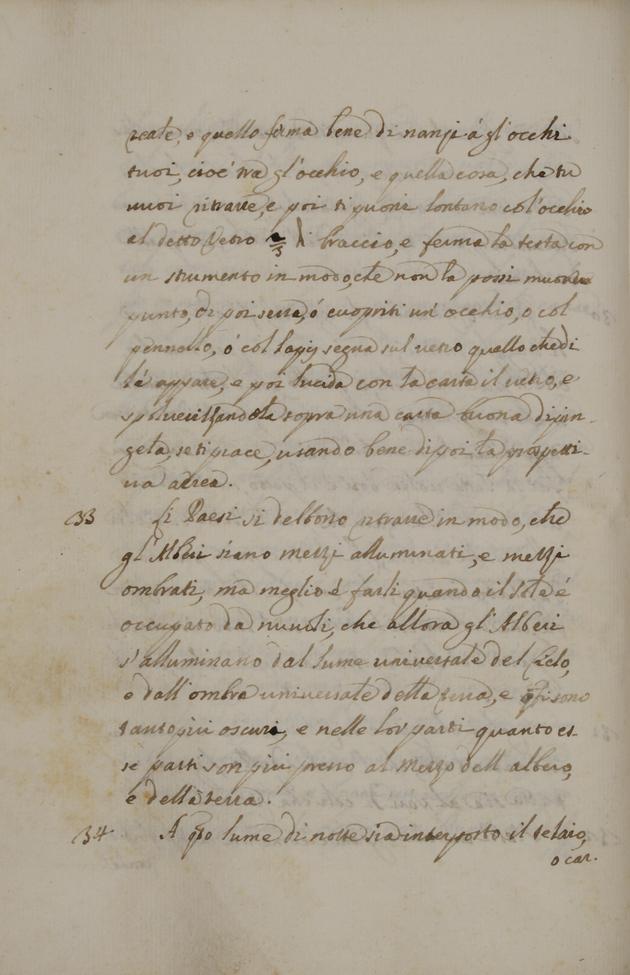 reale, e quello ferma bene di nanzi á gl'occhi
tuoi, cioé tra gl'occhio, e quella cosa, che tu
vuoi ritrarre, e poi ti poni lontano col'occhio
al detto Vetro 2/3 di braccio, e ferma la testa con
un strumento in modo, che non la possi muovere
punto, di poi serra, ó cuopriti un' occhio, o col
pennello, ó col lapis segna sul vetro quello che di
lá appare, e poi lucida con la carta il vetro, e
spolverizzandola sopra una carta buona dipin-
gela, se ti piace, usando bene di poi la prospetti-
va aerea.
33 Li Paesi si debbono ritrarre in modo, che
gl'Alberi siano mezzi alluminati, e mezzi
ombrati, ma meglio é farli quando il sole é
occupato da nuvoli, che allora gl'Alberi
s'alluminano dal lume universale del Cielo,
e dall'ombra universale della terra, e qsti sono
tanto piu oscuri, e nelle lor parti quanto es
se parti son piu presso al mezzo dell albero,
e della terra.
34 A qto lume di notte sia interposto il telaio,
o car.